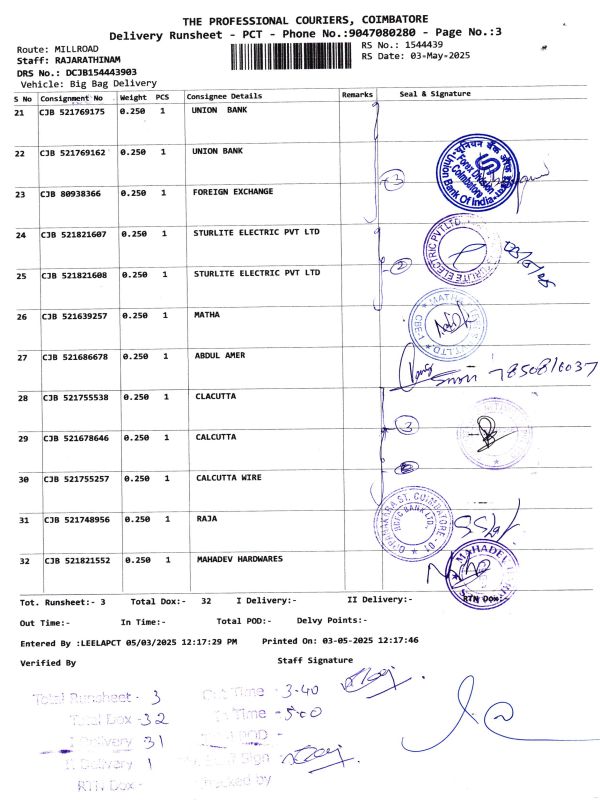 THE PROFESSIONAL COURIERS, COIMBATORE
Delivery Runsheet - PCT - Phone No.:9047080280 - Page No.:3
Route: MILLROAD
RS No.: 1544439
Staff: RAJARATHINAM
RS Date: 03-May-2025
DRS No.: DCJB154443903
Vehicle: Big Bag Delivery
S No Consignment No Weight PCS Consignee Details Remarks Seal & Signature
21 CJB 521769175 0.250 1 UNION BANK
22 CJB 521769162 0.250 1 UNION BANK
23 CJB 80938366 0.250 1 FOREIGN EXCHANGE
3
Forex Division
Coimbatore
Union Bank Of India
24 CJB 521821607 0.250 1 STURLITE ELECTRIC PVT LTD
25 CJB 521821608 0.250 1 STURLITE ELECTRIC PVT LTD
2
STURLITE ELECTRIC PVT LTD
26 CJB 521639257 0.250 1 MATHA
27 CJB 521686678 0.250 1 ABDUL AMER
28 CJB 521755538 0.250 1 CLACUTTA
29 CJB 521678646 0.250 1 CALCUTTA
3
30 CJB 521755257 0.250 1 CALCUTTA WIRE
31 CJB 521748956 0.250 1 RAJA
HDFC BANK LTD.
32 CJB 521821552 0.250 1 MAHADEV HARDWARES
Tot. Runsheet:- 3 Total Dox:- 32 I Delivery:- II Delivery:- RTN Dox:-
Out Time:- In Time:- Total POD:- Delvy Points:-
Entered By :LEELAPCT 05/03/2025 12:17:29 PM Printed On: 03-05-2025 12:17:46
Verified By Staff Signature
Total Runsheet - 3 Out Time - 3-40
Total Dox - 32 In Time - 5:00
I Delivery 31 Total POD -
II Delivery 1 Sign
RTN Dox - Checked by